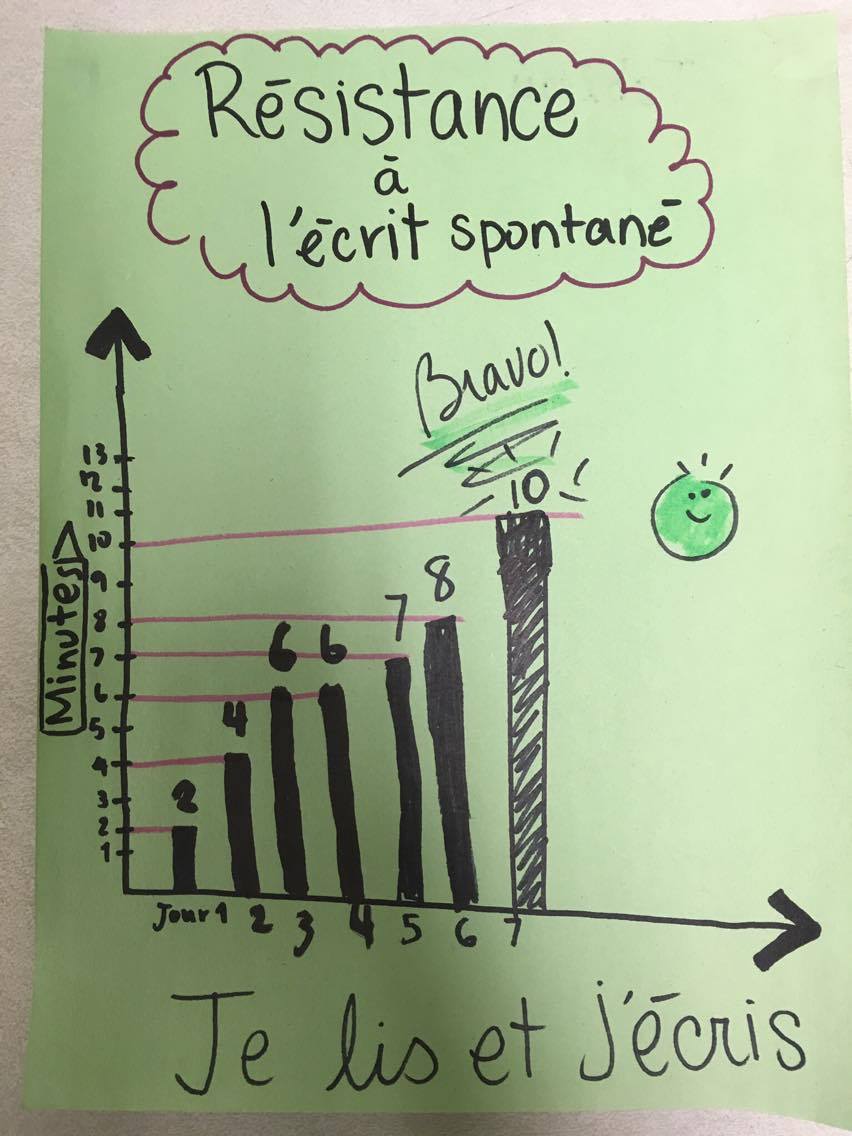 Résistance
à
l'écrit spontané
Bravo!
13
12
11
10
9
8
7
6
5
4
3
2
1
Minutes
2
4
6
6
7
8
10
Jour 1 2 3 4 5 6 7
Je lis et j'écris